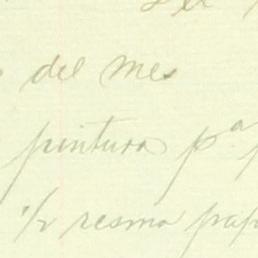 del mes
pintura pª
½ resma pap